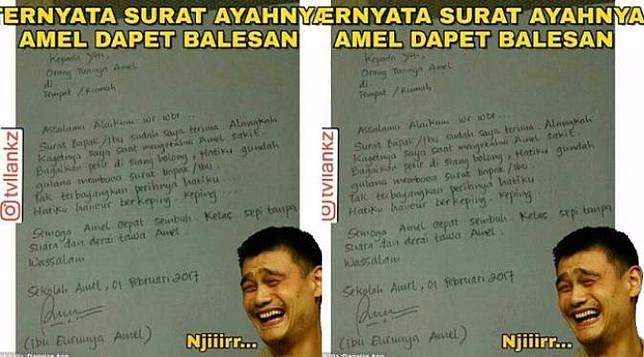 TERNYATA SURAT AYAHNYA
AMEL DAPET BALESAN
Kepada Yth,
Orang Tuanya Amel
di
Tempat / Rumah
Assalamu Alaikum wr wbr...
Surat Bapak/Ibu sudah saya terima. Alangkah
Kagetnya saya saat mengetahui Amel sakit.
Bagaikan petir di siang bolong, Hatiku gundah
gulana membaca surat bapak/ibu
Tak terbayangkan perihnya hatiku...
Hatiku hancur berkeping-keping...
Semoga Amel cepat sembuh. Kelas sepi tanpa
suara dan derai tawa Amel.
Wassalam
Sekolah Amel, 01 Februari 2017
(Ibu Gurunya Amel)
Njiiirr...
tvllankz
ERNYATA SURAT AYAHNYA
AMEL DAPET BALESAN
Kepada Yth,
Orang Tuanya Amel
di
Tempat / Rumah
Assalamu Alaikum wr wbr...
Surat Bapak/Ibu sudah saya terima. Alangkah
Kagetnya saya saat mengetahui Amel sakit.
Bagaikan petir di siang bolong, Hatiku gundah
gulana membaca surat bapak/ibu
Tak terbayangkan perihnya hatiku...
Hatiku hancur berkeping-keping
Semoga Amel cepat sembuh. Kelas sepi tanpa
suara dan derai tawa Amel.
Wassalam
Sekolah Amel, 01 Februari 2017
(Ibu Gurunya Amel)
Njiiirr...
tvllankz